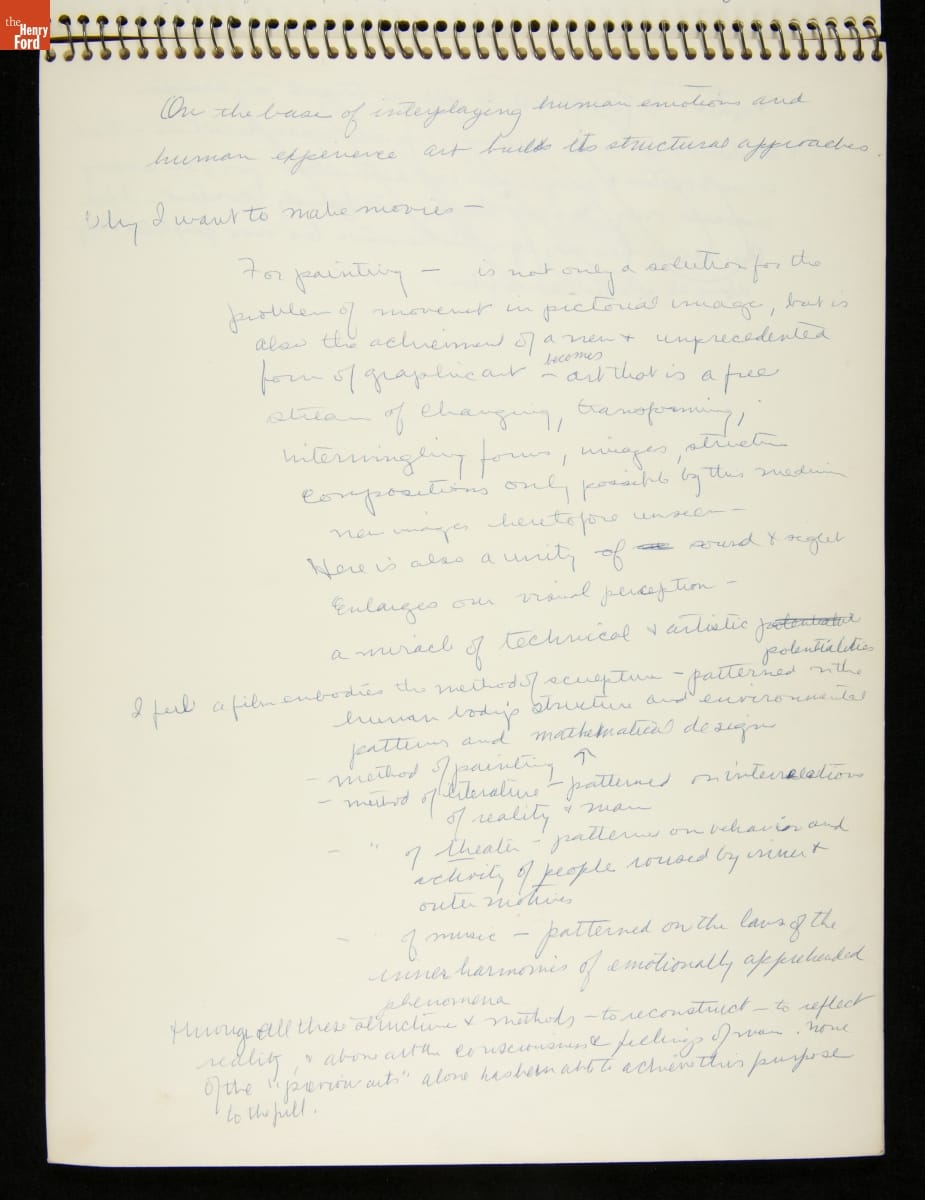 the
Henry
Ford
On the base of interplaying human emotions and
human experience art builds its structural approaches.
Why I want to make movies —
For painting — is not only a solution for the
problem of movement in pictorial image, but is
also the achievement of a new & unprecedented
becomes
form of graphic art – art that is a free
stream of changing, transforming,
intermingling forms, images, structure
compositions only possible by this medium
new images heretofore unseen —
Here is also a unity of sound & sight
Enlarges our visual perception —
a miracle of technical & artistic
potentialities
I feel a film embodies the method of sculpture — patterned on the
human body's structure and environmental
patterns and mathematical design
– method of painting ↑
– method of literature – patterned on interrelations
of reality & man
– " of theater – patterned on behavior and
activity of people roused by inner &
outer motives
– of music — patterned on the laws of the
inner harmonies of emotionally apprehended
phenomena
through all these structure & methods – to reconstruct – to reflect
reality, & above all the consciousness & feelings of man. None
of the "previous arts" alone has been able to achieve this purpose
to the full.